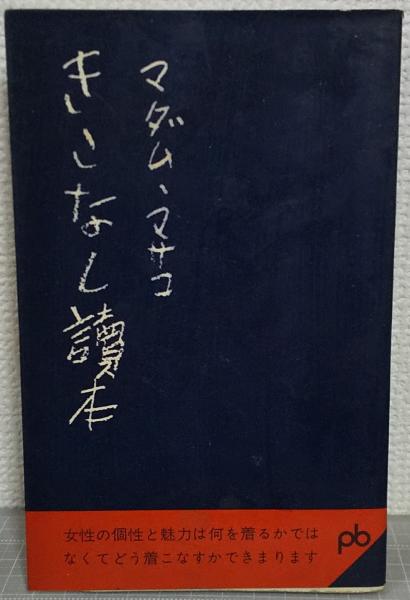 マダム・マサコ
きこなし讀本
女性の個性と魅力は何を着るかでは
なくてどう着こなすかできまります
pb